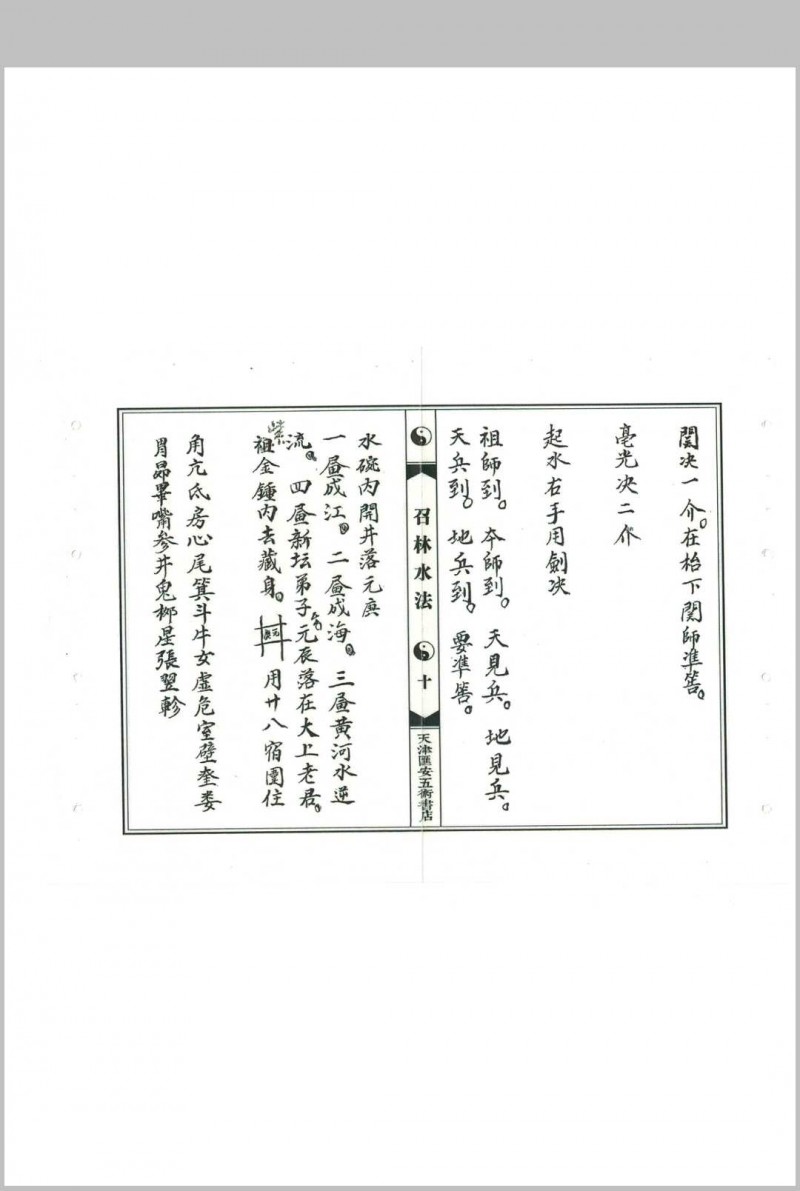 関决一介。在枱下関師準筶。
毫光决二介
起水右手用劍决
祖師到。本師到。天見兵。地見兵。
天兵到。地兵到。要準筶。
召林水法
十
天津匯安五術書店
水碗内開井落元庚
一昼成江。二昼成海。三昼黄河水逆
流。四昼新坛弟子元辰落在大上老君。
紫
祖金鍾内去藏身。用廿八宿圍住
角亢氐房心尾箕斗牛女虚危室壁奎娄
胃昴畢嘴参井鬼柳星張翌軫